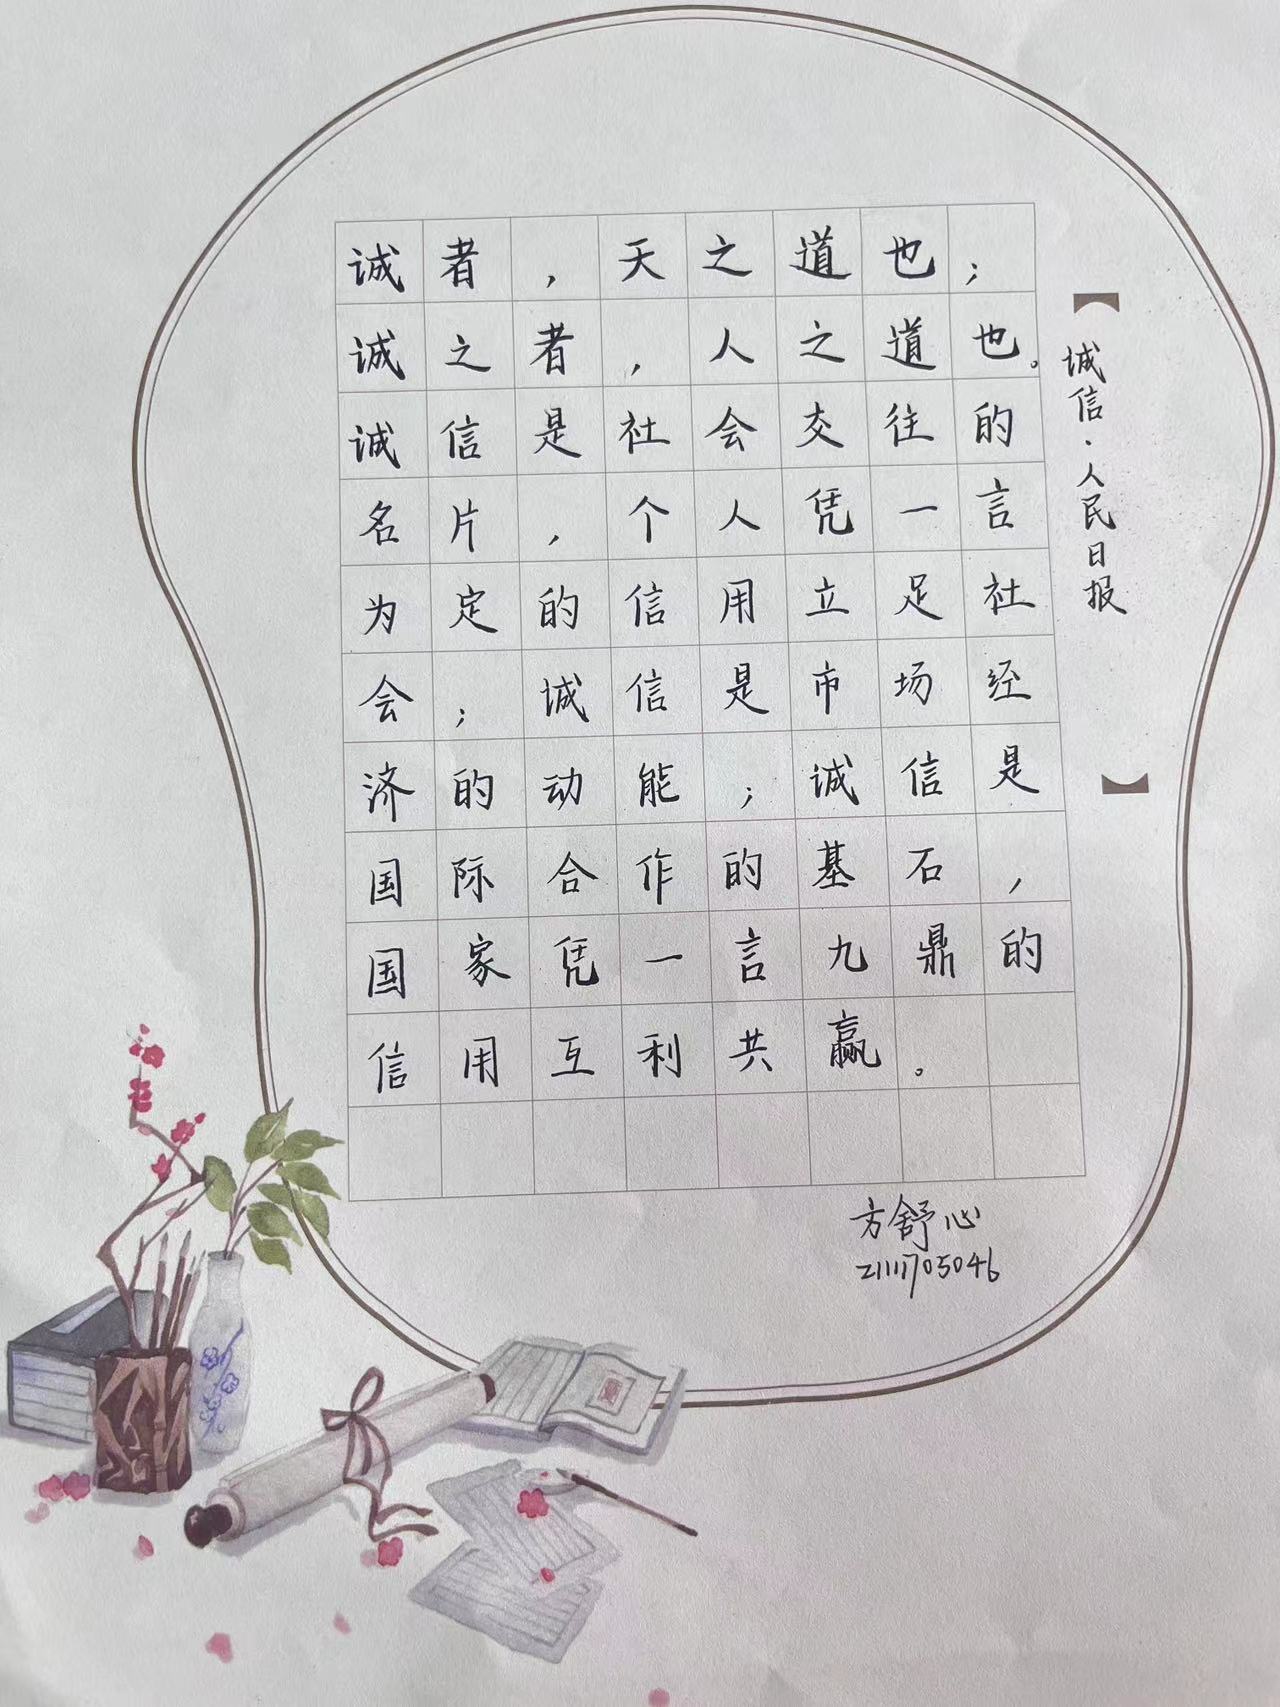 诚者，天之道也；
诚之者，人之道也。
诚信是社会交往的
名片，个人凭一言
为定的信用立足社
会；诚信是市场经
济的动能；诚信是
国际合作的基石，
国家凭一言九鼎的
信用互利共赢。
【诚信·人民日报】
方舒心
2111705046